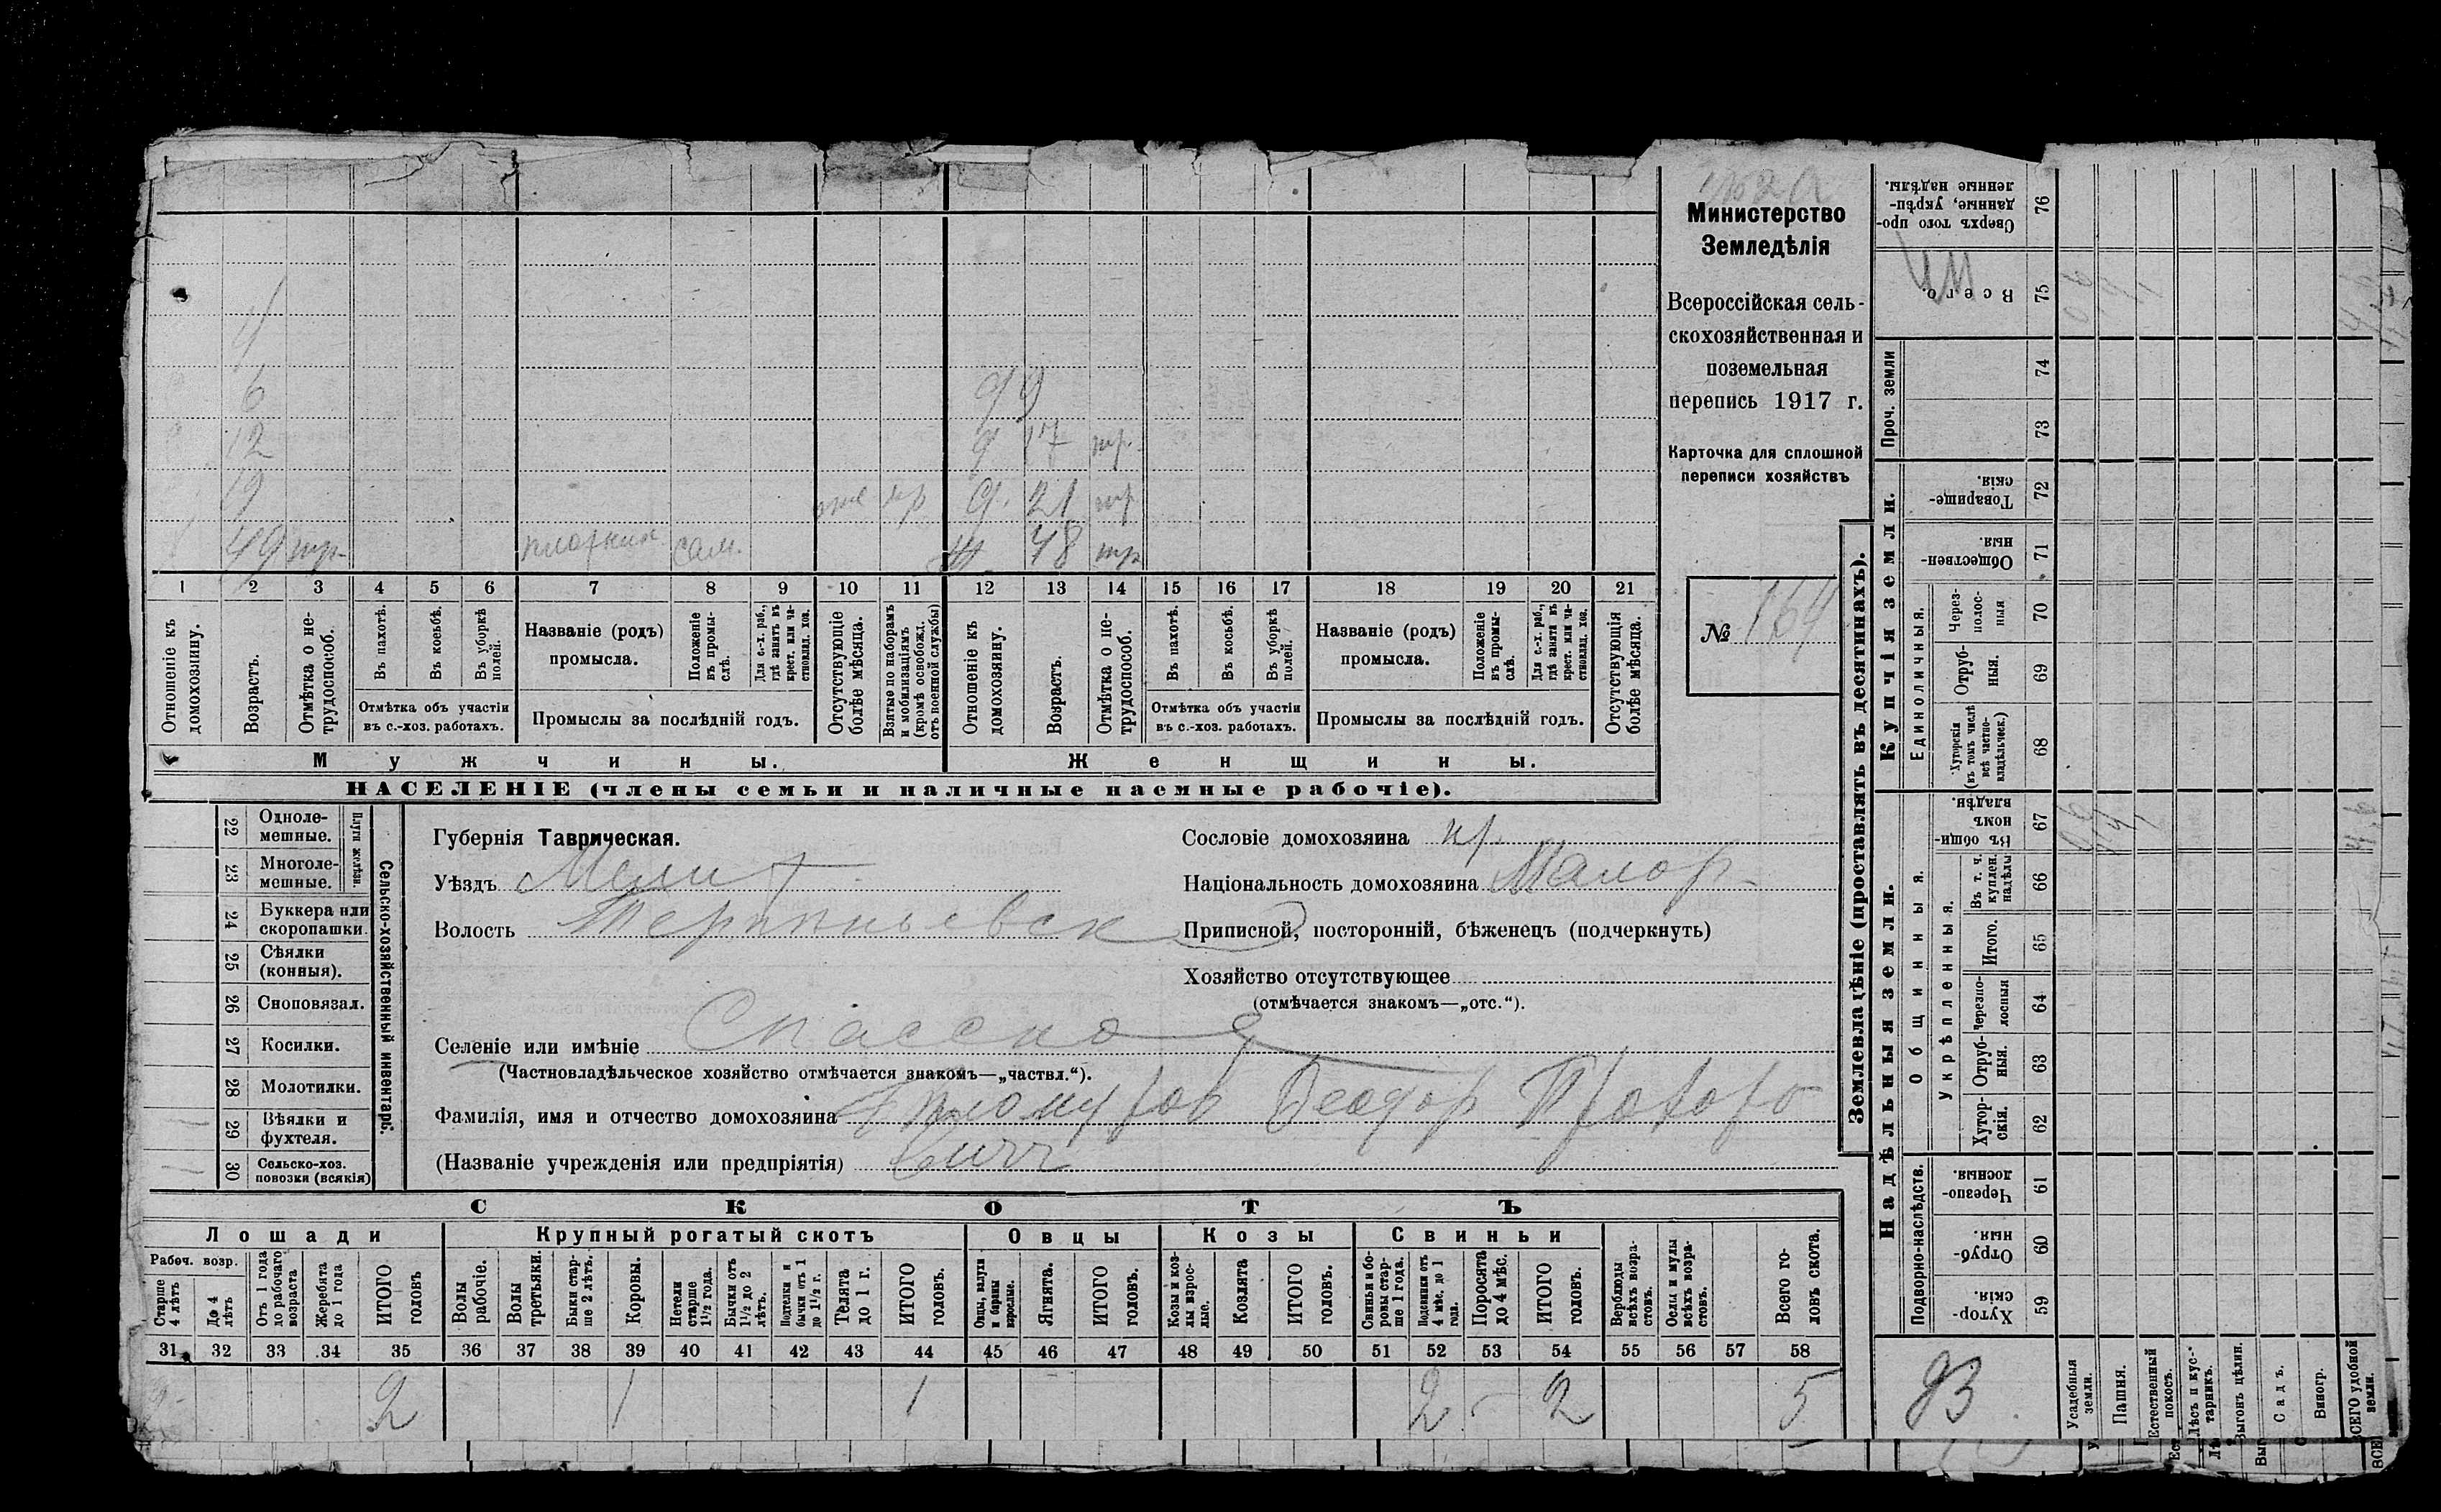 Министерство
Земледѣлія
Всероссійская сель-
скохозяйственная и
поземельная
перепись 1917 г.
Карточка для сплошной
переписи хозяйствъ
№ 164
4
6
12
19
49 тр. плотник сам.
9 9
д 17 тр.
д. 21 тр
ж. 48 тр
1 2 3 4 5 6 7 8 9 10 11 12 13 14 15 16 17 18 19 20 21
Отношеніе къ домохозяину.
Возрастъ.
Отмѣтка о не-трудоспособ.
Въ пахотѣ.
Въ косьбѣ.
Въ уборкѣ полей.
Отмѣтка объ участіи
въ с.-хоз. работахъ.
Названіе (родъ)
промысла.
Положеніе въ промы-слѣ.
Для с.-х. раб., гдѣ занятъ въ крест. или ча-стновлад. хоз.
Промыслы за послѣдній годъ.
Отсутствующіе болѣе мѣсяца.
Взятые по наборамъ и мобилизаціямъ (кромѣ освобожд. отъ военной службы)
Отношеніе къ домохозяину.
Возрастъ.
Отмѣтка о не-трудоспособ.
Въ пахотѣ.
Въ косьбѣ.
Въ уборкѣ полей.
Отмѣтка объ участіи
въ с.-хоз. работахъ.
Названіе (родъ)
промысла.
Положеніе въ промы-слѣ.
Для с.-х. раб., гдѣ занята въ крест. или ча-стновлад. хоз.
Промыслы за послѣдній годъ.
Отсутствующія болѣе мѣсяца.
Мужчины.
Женщины.
НАСЕЛЕНІЕ (члены семьи и наличные наемные рабочіе).
22 Одноле-мешные.
23 Многоле-мешные.
Плуги желѣзн.
24 Буккера или скоропашки.
25 Сѣялки (конныя).
26 Сноповязал.
27 Косилки.
28 Молотилки.
29 Вѣялки и фухтеля.
30 Сельско-хоз. повозки (всякія)
Сельско-хозяйственный инвентарь.
Губернія Таврическая.
Уѣздъ Мелит
Волость Терпеньевск
Сословіе домохозяина кр.
Національность домохозяина Малор.
Приписной, посторонній, бѣженецъ (подчеркнуть)
Хозяйство отсутствующее
(отмѣчается знакомъ—„отс.“).
Селеніе или имѣніе Спасское
(Частновладѣльческое хозяйство отмѣчается знакомъ—„частвл.“).
Фамилія, имя и отчество домохозяина Феодор
(Названіе учрежденія или предпріятія)
СКОТЪ
Лошади
Крупный рогатый скотъ
Овцы
Козы
Свиньи
Рабоч. возр.
Старше 4 лѣтъ
До 4 лѣтъ
Отъ 1 года до рабочаго возраста
Жеребята до 1 года
ИТОГО головъ
Волы рабочіе.
Волы третьяки.
Быки стар-ше 2 лѣтъ.
Коровы.
Нетели старше 1½ года.
Бычки отъ 1½ до 2 лѣтъ.
Подтелки и бычки отъ 1 до 1½ г.
Телята до 1 г.
ИТОГО головъ.
Овцы, валухи и бараны взрослые.
Ягнята.
ИТОГО головъ.
Козы и коз-лы взрос-лые.
Козлята
ИТОГО головъ.
Свиньи и бо-ровы стар-ше 1 года.
Подсвинки отъ 4 мѣс. до 1 года.
Поросята до 4 мѣс.
ИТОГО головъ.
Верблюды всѣхъ возра-стовъ.
Ослы и мулы всѣхъ возра-стовъ.
Всего го-ловъ скота.
31 32 33 34 35 36 37 38 39 40 41 42 43 44 45 46 47 48 49 50 51 52 53 54 55 56 57 58
2 2 1 1 2 - 2 5
Землевладѣніе (проставлять въ десятинахъ).
Купчія земли.
Надѣльныя земли.
Сверхъ того про-данные, укрѣп-ленные надѣлы. 76
Всего. 75
Проч. земли 74 73
Товарище-скія. 72
Обществен-ныя. 71
Единоличныя.
Через-полос-ныя 70
Отруб-ныя. 69
Хуторскія (въ томъ числѣ всѣ частно-владѣльческ.) 68
Общинныя.
Въ общи-номъ владѣн. 67
Въ т. ч. куплен. надѣлы 66
Укрѣпленныя.
Итого. 65
Черезпо-лосныя 64
Отруб-ныя. 63
Хутор-скія. 62
Подворно-наслѣдств.
Черезпо-лосныя 61
Отруб-ныя. 60
Хутор-скія 59
Усадебныя земли.
Пашня.
Естественный покосъ.
Лѣсъ и кус-тарникъ.
Выгонъ цѣлин.
Садъ.
Виногр.
ВСЕГО удобной земли.